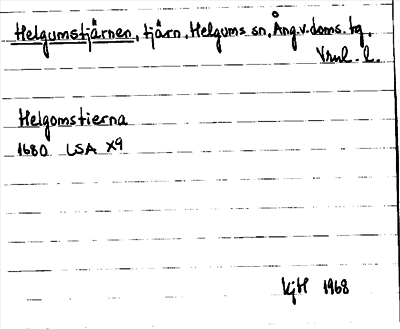 Helgumstjärnen, tjärn, Helgums sn, Ång.v.doms.tg,
Vrnl. l.
Helgomstierna
1680 LSA X9
KjH 1968